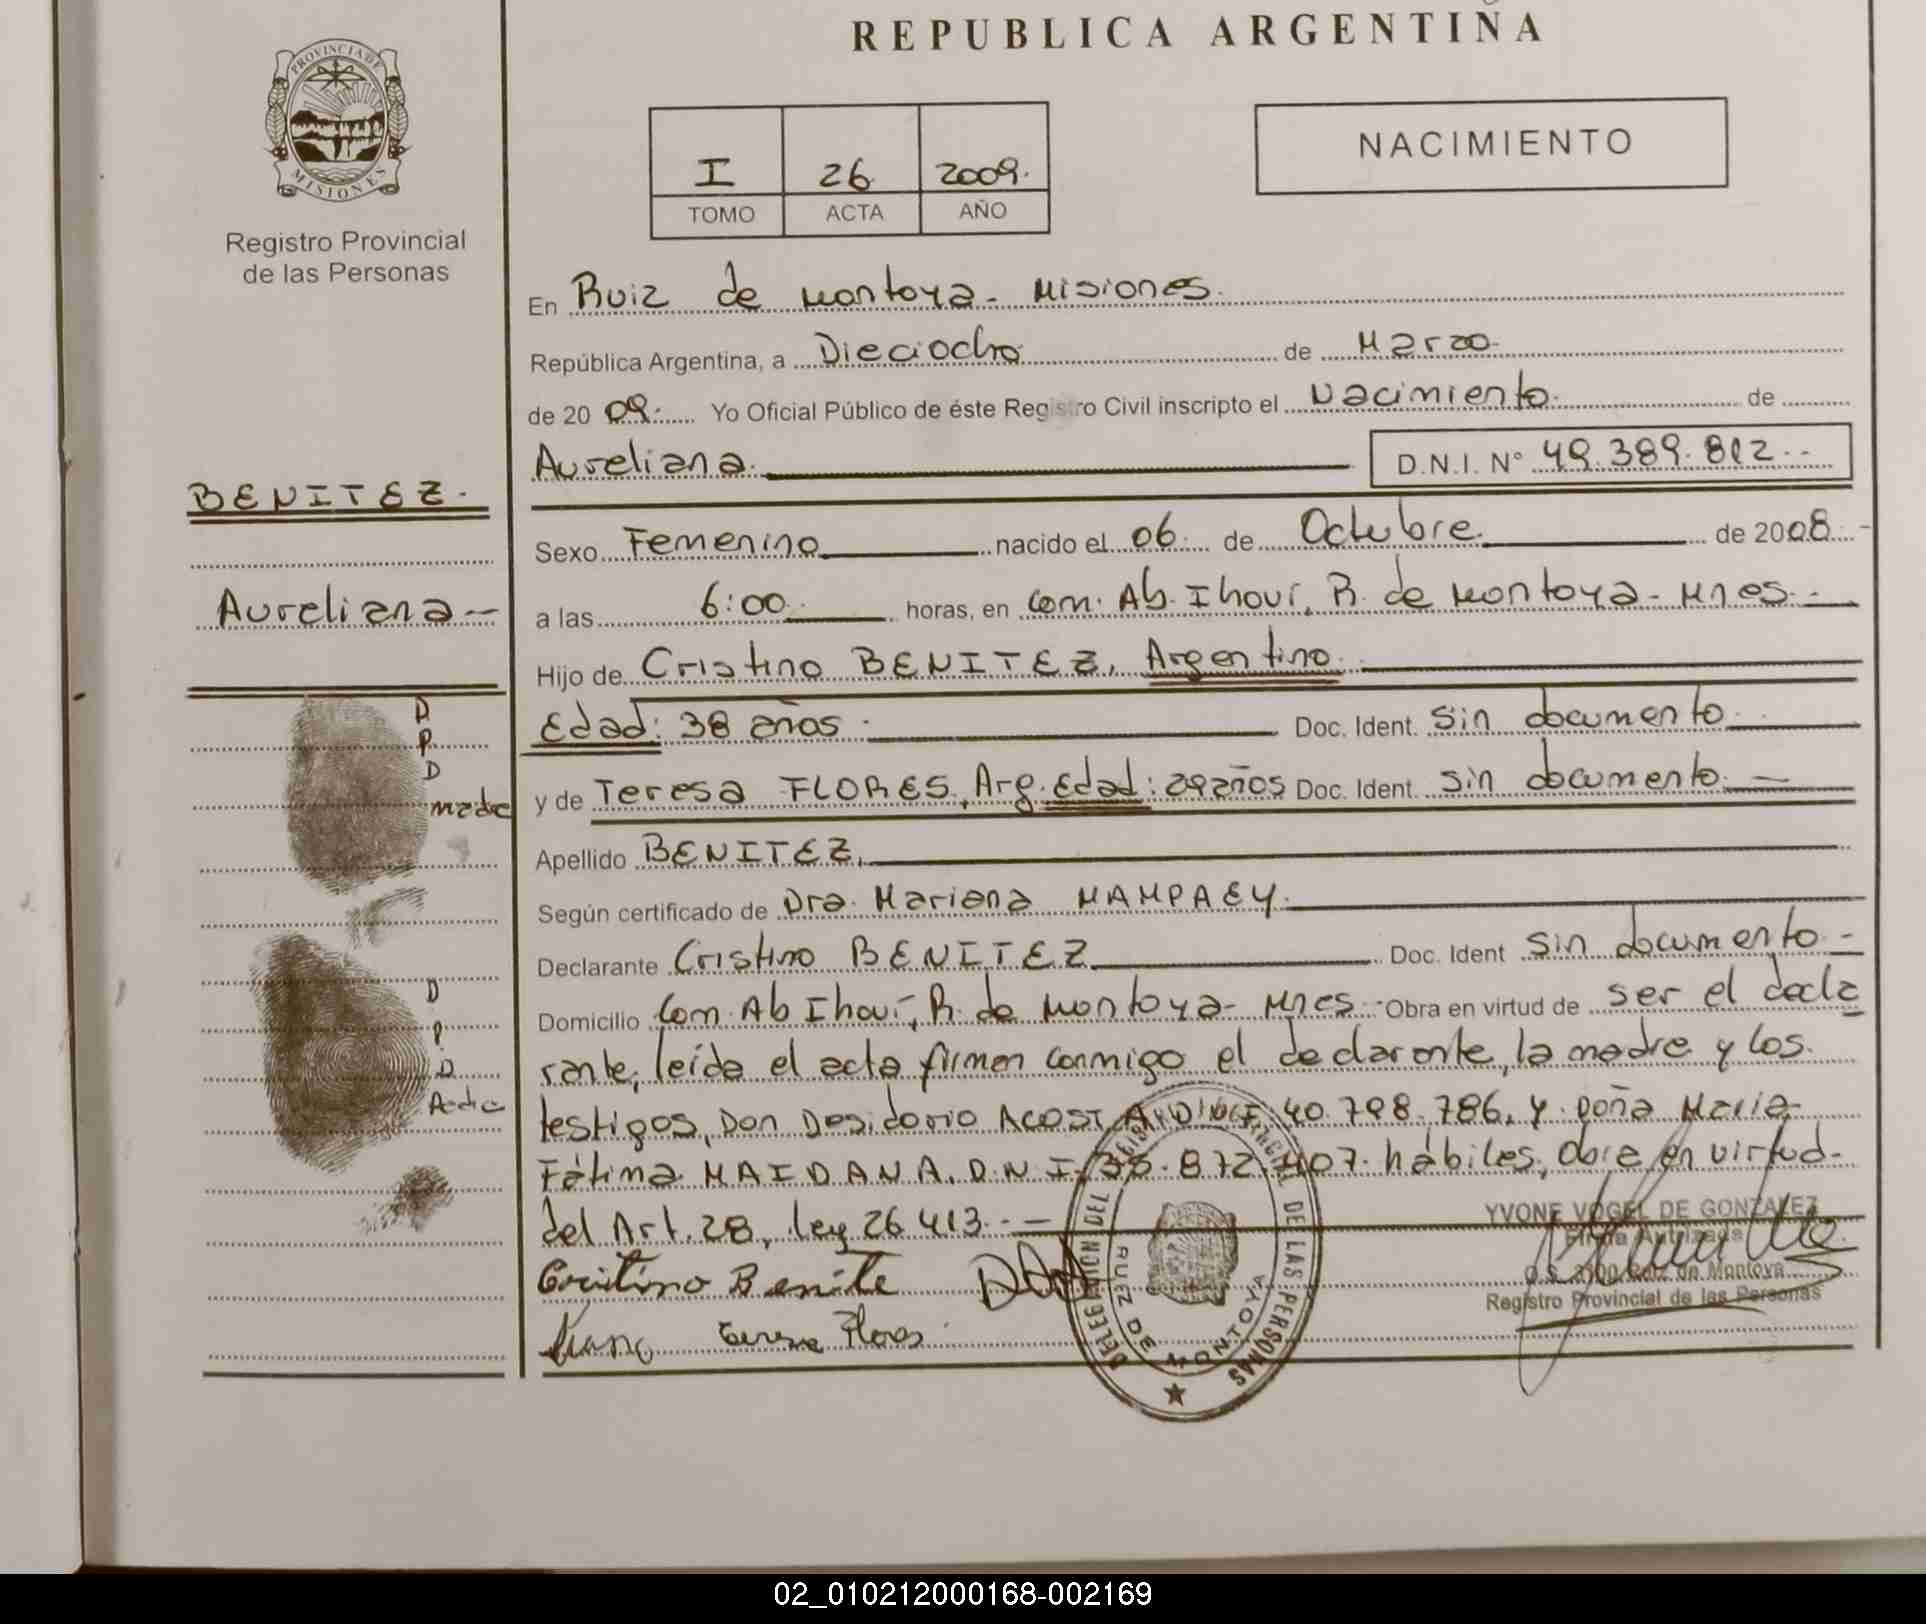 REPUBLICA ARGENTINA
PROVINCIA DE MISIONES
Registro Provincial
de las Personas
I 26 2009.
TOMO ACTA AÑO
NACIMIENTO
En Ruiz de Montoya - Misiones.
República Argentina, a Dieciocho de Marzo
de 20 09. Yo Oficial Público de éste Registro Civil inscripto el Nacimiento. de
Aureliana. D.N.I. N° 49.389.812.-
BENITEZ.
Aureliana-
Sexo Femenino nacido el 06 de Octubre. de 2008.-
a las 6:00 horas, en Com. Ab. Ihovi, R. de Montoya - Mnes.-
Hijo de Cristino BENITEZ, Argentino.
Edad: 38 años. Doc. Ident. Sin documento.
y de Teresa FLORES, Arg. Edad: 29años Doc. Ident. Sin documento.-
Apellido BENITEZ.
Según certificado de Dra. Mariana MAMPAEY.
Declarante Cristino BENITEZ Doc. Ident Sin documento.-
Domicilio Com. Ab Ihovi, R. de Montoya - Mnes - Obra en virtud de ser el decla
rante, leída el acta firman conmigo el declarante, la madre y los
testigos, Don Desidorio ACOSTA, D.N.I. 40.798.786, y Doña Maria
Fátima MAIDANA. D.N.I. 407. hábiles, obra en virtud-
del Art. 28, ley 26.413.-
Cristino Benite
Teresa Flores
D
P
D
madre
D
P
D
Padre
DELEGACION DEL REGISTRO PROVINCIAL DE LAS PERSONAS
RUIZ DE MONTOYA
YVONE VOGEL DE GONZALEZ
Firma Autorizada
Ruiz de Montoya
Registro Provincial de las Personas
02_010212000168-002169